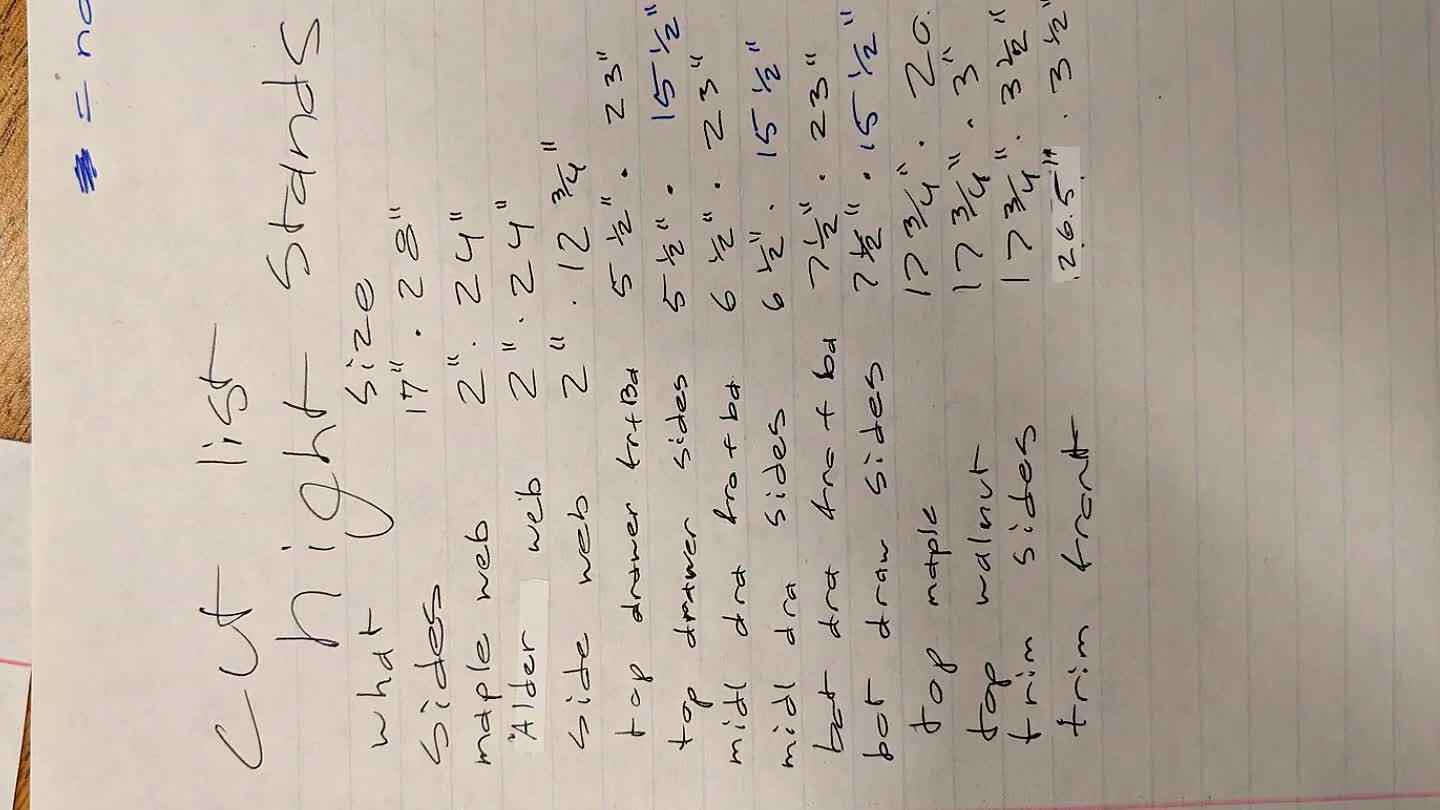 = no
Cut list
night stands
what size
sides 17" . 28"
maple web 2" . 24"
"Alder web 2" . 24"
side web 2" . 12 3/4"
top drawer fr+Ba 5 1/2" . 23"
top drawer sides 5 1/2" . 15 1/2"
midl dra fro + ba 6 1/2" . 23"
midl dra sides 6 1/2" . 15 1/2"
bot dra fro + ba 7 1/2" . 23"
bot draw sides 7 1/2" . 15 1/2"
top maple 17 3/4" . 20.
top walnut 17 3/4" . 3"
trim sides 17 3/4" . 3 1/2"
trim front 26.5" . 3 1/2"